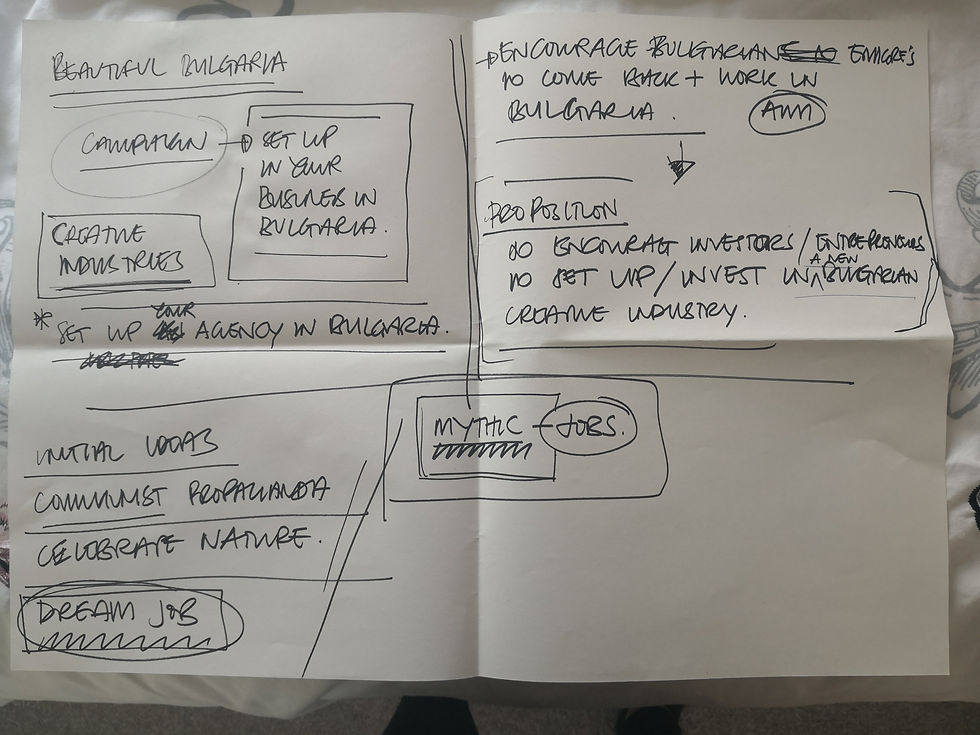 BEAUTIFUL BULGARIA
CAMPAIGN
SET UP
IN YOUR
BUSINESS IN
BULGARIA.
CREATIVE
INDUSTRIES
* SET UP YOUR AGENCY IN BULGARIA.
ENCOURAGE BULGARIAN EMIGRE'S
TO COME BACK + WORK IN
BULGARIA.
AIM
PROPOSITION
TO ENCOURAG INVESTORS / ENTREPRENEURS
TO SET UP / INVEST IN A NEW BULGARIAN
CREATIVE INDUSTRY.
MYTHIC - JOBS.
INITIAL IDEAS
COMMUNIST PROPAGANDA
CELEBRATE NATURE.
DREAM JOB